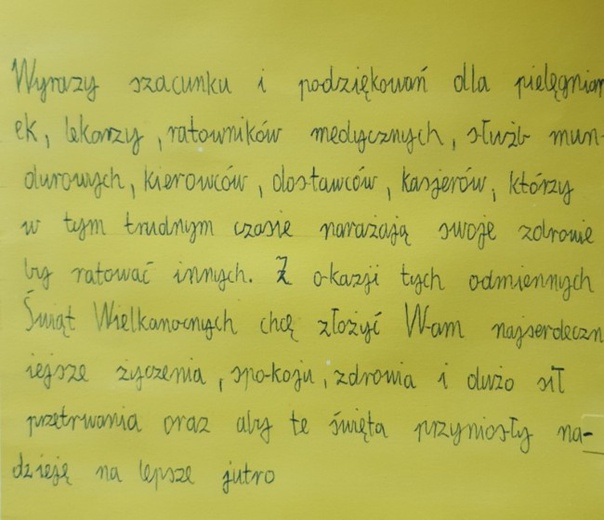 Wyrazy szacunku i podziękowań dla pielęgniar
ek, lekarzy, ratowników medycznych, służb mun-
durowych, kierowców, dostawców, kasjerów, którzy
w tym trudnym czasie narażają swoje zdrowie
by ratować innych. Z okazji tych odmiennych
Świąt Wielkanocnych chcę złożyć Wam najserdeczn
iejsze życzenia, spokoju, zdrowia i dużo sił
przetrwania oraz aby te święta przyniosły na-
dzieję na lepsze jutro